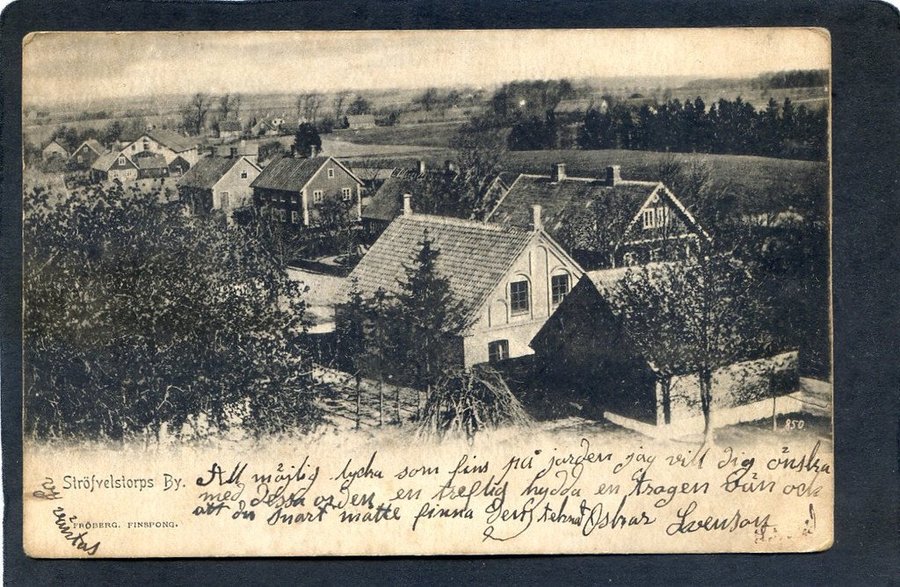 850
Ströfvelstorps By.
FRÖBERG. FINSPONG.
All möjlig lycka som fins på jorden jag vill Dig önska
med dessa orden en treflig hydda en trogen vän och
att du snart måtte finna Oskar Svenson